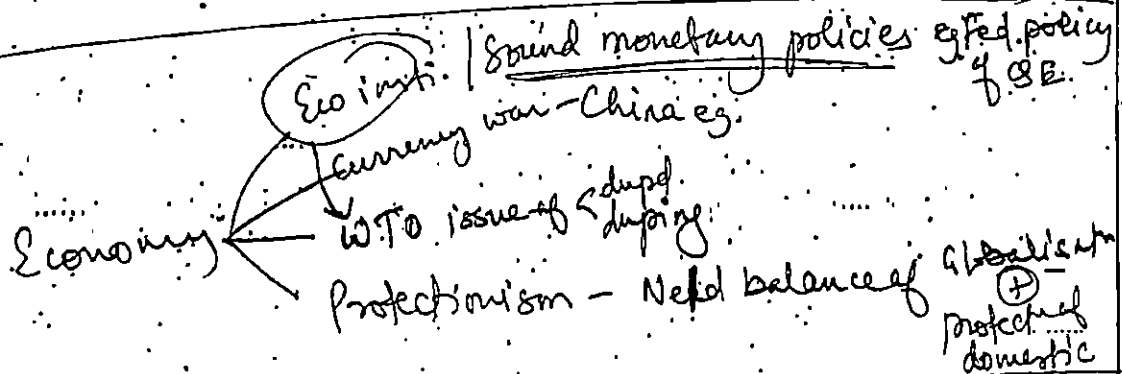 Eco insti. | Sound monetary policies eg Fed. policy
of QE.
Currency war - China eg.
Economy
WTO issue of < dupd.
duping.
Protectionism - Need balance of Globalisatn
+
protect of
domestic